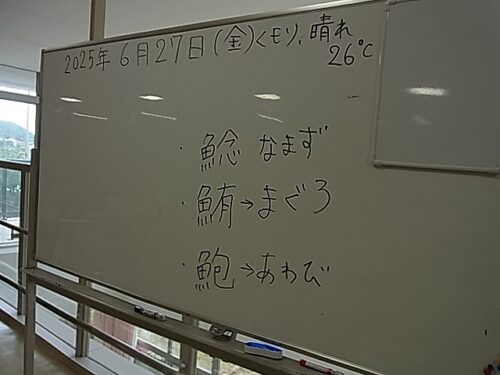 2025年6月27日(金)くモリ、晴れ
26℃
・鯰 なまず
・鮪→まぐろ
・鮑→あわび